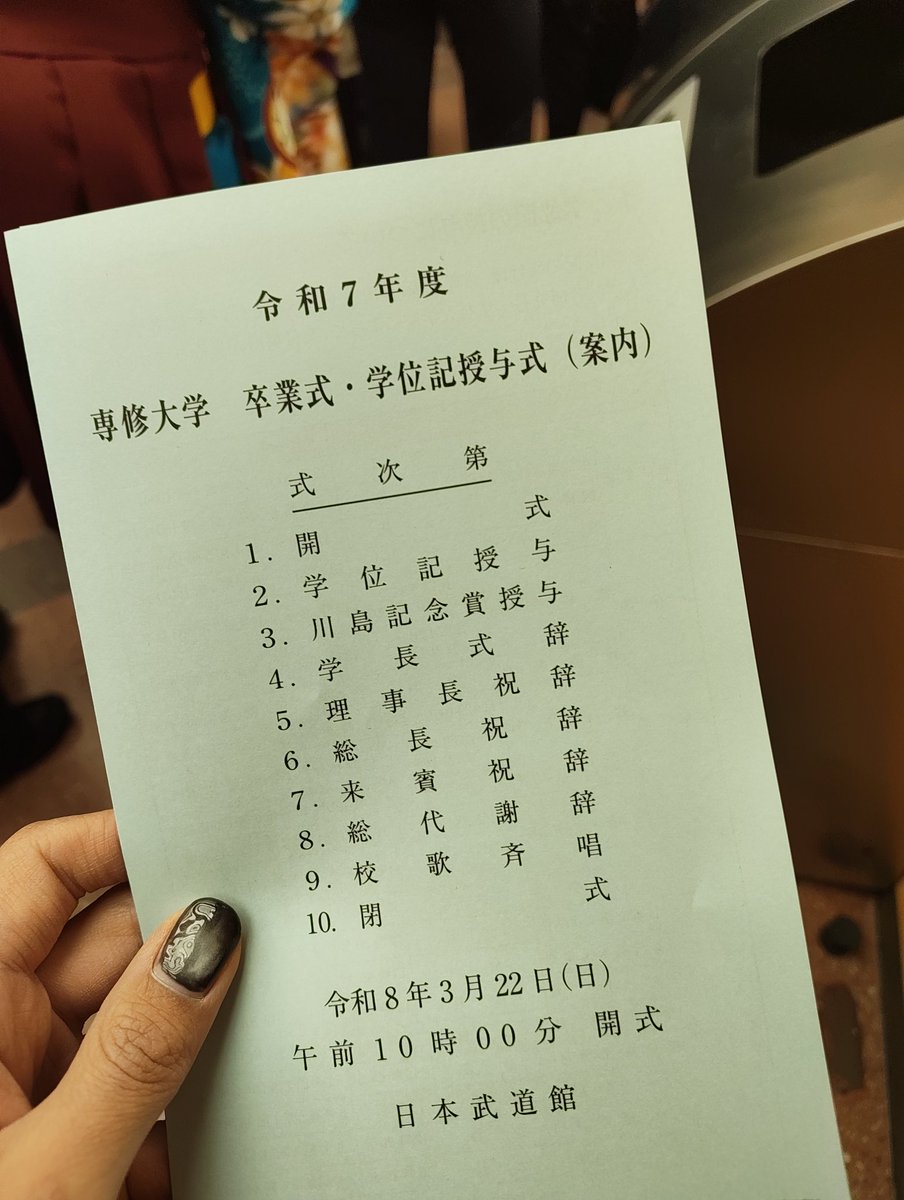 令和7年度
専修大学 卒業式・学位記授与式（案内）
式次第
1. 開式
2. 学位記授与
3. 川島記念賞授与
4. 学長式辞
5. 理事長祝辞
6. 総長祝辞
7. 来賓祝辞
8. 総代謝辞
9. 校歌斉唱
10. 閉式
令和8年3月22日(日)
午前10時00分 開式
日本武道館